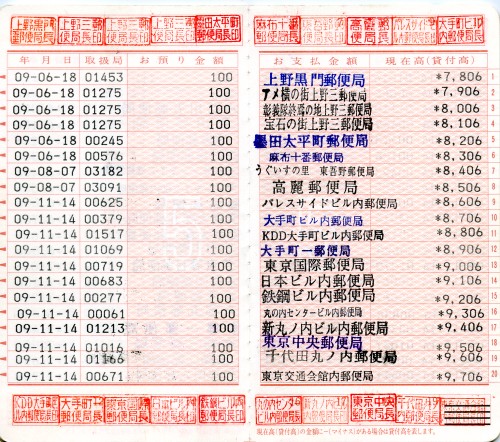 上野黒門郵便局長印 上野三郵便局長印 上野三郵便局長印 上野三郵便局長印 墨田太平町郵便局長印 麻布十番郵便局長印 高麗郵便局長印 パレスサイドビル内郵便局長印 大手町ビル内郵便局長印
年月日 取扱局 お預り金額 お支払金額 現在高(貸付高)
09-06-18 01453 100 上野黒門郵便局 *7,806
09-06-18 01275 100 アメ横の街上野三郵便局 *7,906
09-06-18 01275 100 彰義隊終焉の地上野三郵便局 *8,006
09-06-18 01275 100 宝石の街上野三郵便局 *8,106
09-06-18 00245 100 墨田太平町郵便局 *8,206
09-06-18 00576 100 麻布十番郵便局 *8,306
09-08-07 03182 100 うぐいすの里 東吾野郵便局 *8,406
09-08-07 03091 100 高麗郵便局 *8,506
09-11-14 00625 100 パレスサイドビル内郵便局 *8,606
09-11-14 00379 100 大手町ビル内郵便局 *8,706
09-11-14 01517 100 KDD大手町ビル内郵便局 *8,806
09-11-14 01069 100 大手町一郵便局 *8,906
09-11-14 00719 100 東京国際郵便局 *9,006
09-11-14 00683 100 日本ビル内郵便局 *9,106
09-11-14 00277 100 鉄鋼ビル内郵便局 *9,206
09-11-14 00061 100 丸の内センタービル内郵便局 *9,306
09-11-14 01213 100 新丸ノ内ビル内郵便局 *9,406
09-11-14 01016 100 東京中央郵便局 *9,506
09-11-14 01166 100 千代田丸ノ内郵便局 *9,606
09-11-14 00671 100 東京交通会館内郵便局 *9,706
KDD大手町ビル内郵便局長印 大手町一郵便局長印 東京国際郵便局長印 日本ビル内郵便局長印 鉄鋼ビル内郵便局長印 東京中央郵便局長印
現在高(貸付高)の金額に-(マイナス)がある場合は貸付高を表します。